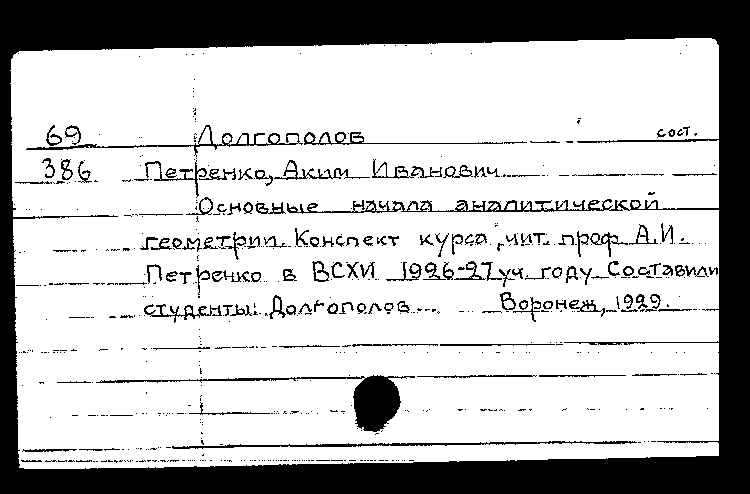 69 Долгополов сост.
386 Петренко, Аким Иванович
Основные начала аналитической
геометрии. Конспект курса, чит. проф. А.И.
Петренко в ВСХИ 1926-27 уч. году Составили
студенты: Долгополов... Воронеж, 1929.